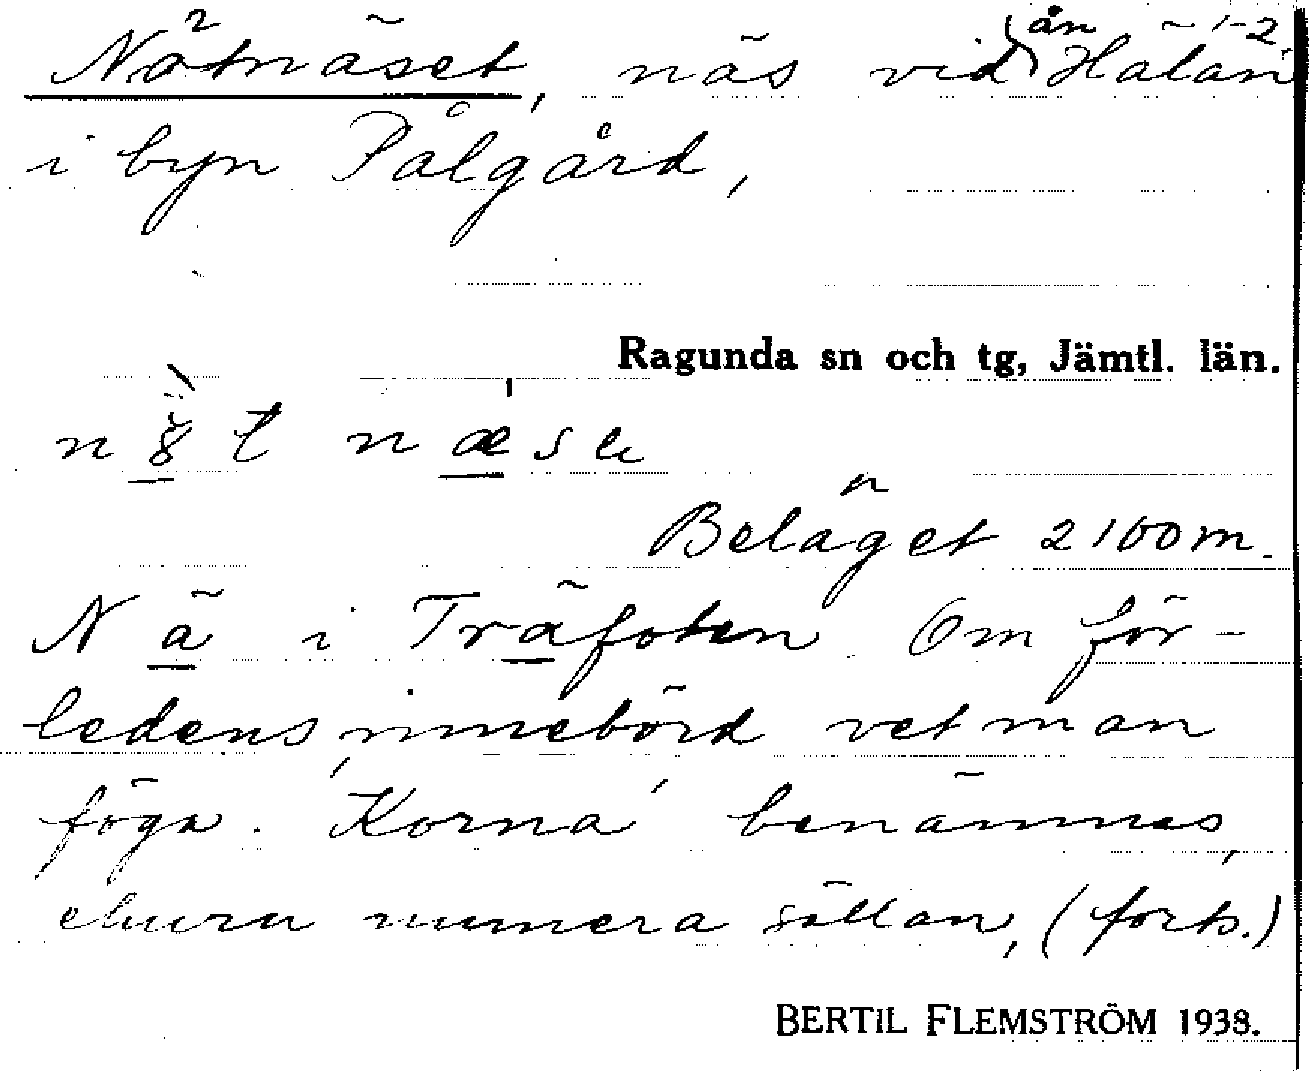 Nötnäset, näs vid ån Hälån 1-2
i byn Pålgård,
Ragunda sn och tg, Jämtl. län.
Beläget 2100 m.
N ä i Träfoten. Om för-
ledens innebörd vet man
föga. 'Korna' benämnes,
ehuru numera sällan, (forts.)
BERTIL FLEMSTRÖM 1938.